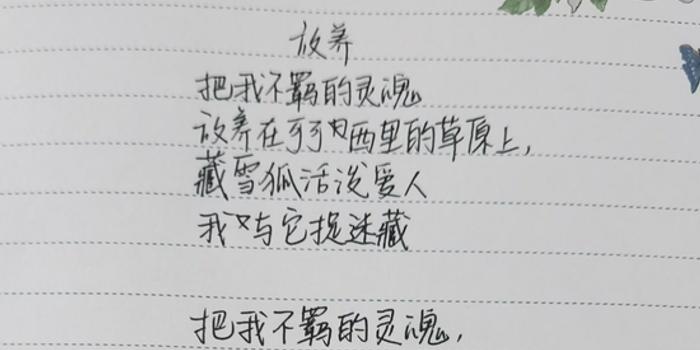 放养
把我不羁的灵魂
放养在可可西里的草原上,
藏雪狐活泼爱人
我又与它捉迷藏

把我不羁的灵魂,